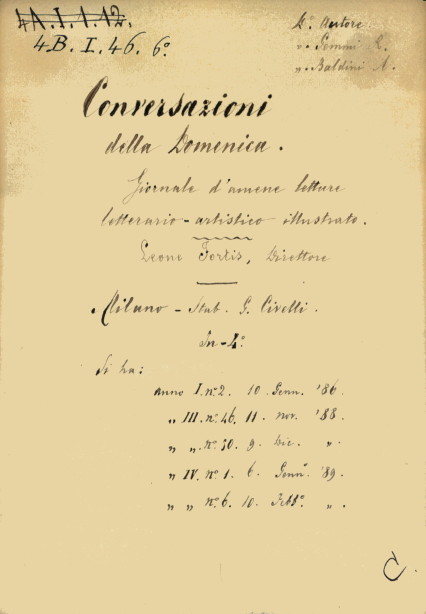 4A.I.1.12.
4B.I.46.6º
Dº Autore
" Gemmi C.
" Baldini A.
Conversazioni
della Domenica.
Giornale d'amene letture
letterario-artistico illustrato.
Leone Fortis, Direttore
Milano - Stab. G. Civelli.
In-4º
Si ha:
Anno I. nº 2. 10. Genn. '86.
" III. nº 46. 11. Nov. '88.
" " nº 50. 9. Dic. ".
" IV. nº 1. 6. Gennº '89.
" " nº 6. 10. Febbº. ".
C.